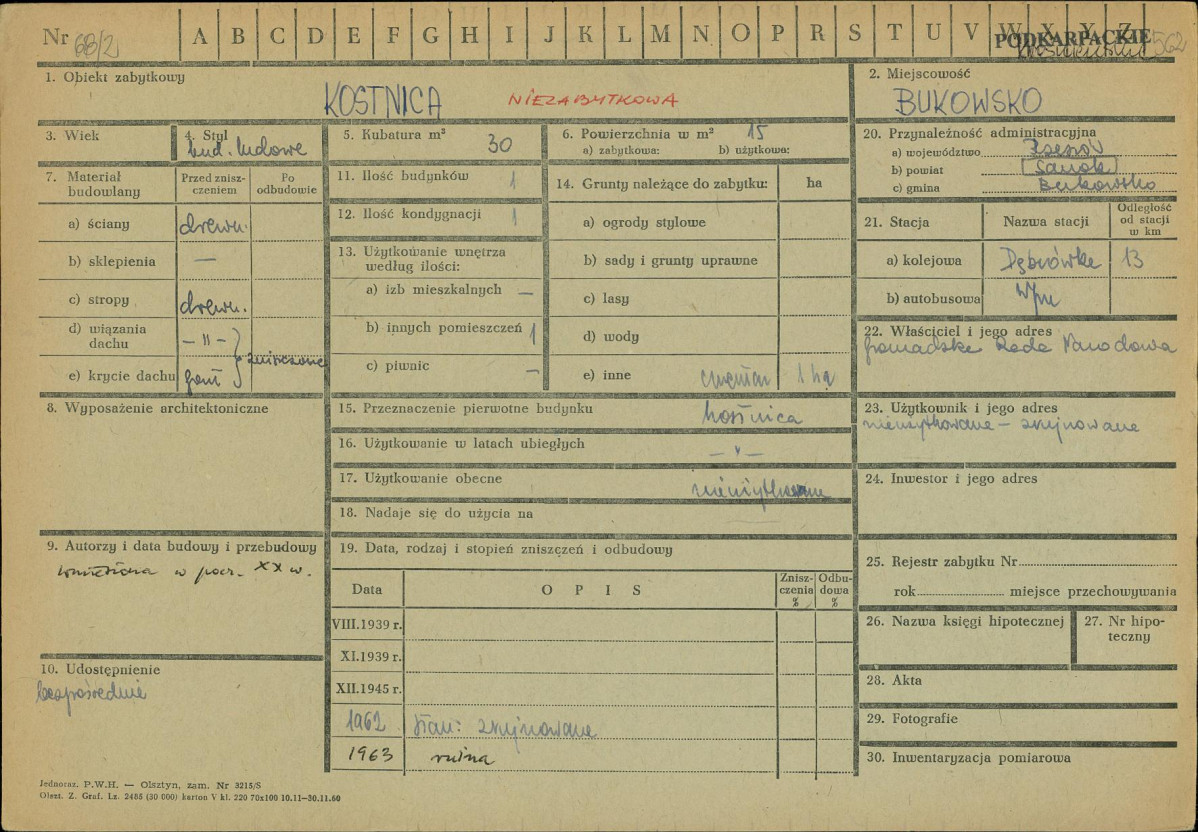 Nr 6B/2 A B C D E F G H I J K L M N O P R S T U V W X Y Z PODKARPACKIE 562
1. Obiekt zabytkowy
KOSTNICA NIEZABYTKOWA
2. Miejscowość
BUKOWSKO
3. Wiek
4. Styl
bud. ludowe
5. Kubatura m³ 30
6. Powierzchnia w m² 15
a) zabytkowa: b) użytkowa:
20. Przynależność administracyjna
a) województwo Rzeszów
b) powiat Sanok
c) gmina Bukowsko
7. Materiał budowlany
Przed zniszczeniem
Po odbudowie
a) ściany drewn.
b) sklepienia —
c) stropy drewn.
d) wiązania dachu — " —
e) krycie dachu gont
zniszczone
11. Ilość budynków 1
12. Ilość kondygnacji 1
13. Użytkowanie wnętrza
według ilości:
a) izb mieszkalnych —
b) innych pomieszczeń 1
c) piwnic —
14. Grunty należące do zabytku: ha
a) ogrody stylowe
b) sady i grunty uprawne
c) lasy
d) wody
e) inne cmentarz 1 ha
21. Stacja Nazwa stacji Odległość od stacji w km
a) kolejowa Dąbrówka 13
b) autobusowa
22. Właściciel i jego adres
Gromadzka Rada Narodowa
8. Wyposażenie architektoniczne
15. Przeznaczenie pierwotne budynku kostnica
16. Użytkowanie w latach ubiegłych — " —
17. Użytkowanie obecne nieużytkowana
18. Nadaje się do użycia na
23. Użytkownik i jego adres
nieużytkowana – zrujnowana
24. Inwestor i jego adres
9. Autorzy i data budowy i przebudowy
wzniesiona w pocz. XX w.
19. Data, rodzaj i stopień zniszczeń i odbudowy
Data OPIS Zniszczenia % Odbudowa %
VIII.1939 r.
XI.1939 r.
XII.1945 r.
1962 stan: zrujnowana
1963 ruina
25. Rejestr zabytku Nr
rok miejsce przechowywania
26. Nazwa księgi hipotecznej
27. Nr hipoteczny
10. Udostępnienie
bezpośrednie
28. Akta
29. Fotografie
30. Inwentaryzacja pomiarowa
Jednoraz. P.W.H. — Olsztyn, zam. Nr 3215/S
Olszt. Z. Graf. Lz. 2485 (30 000) karton V kl. 220 70x100 10.11–30.11.60